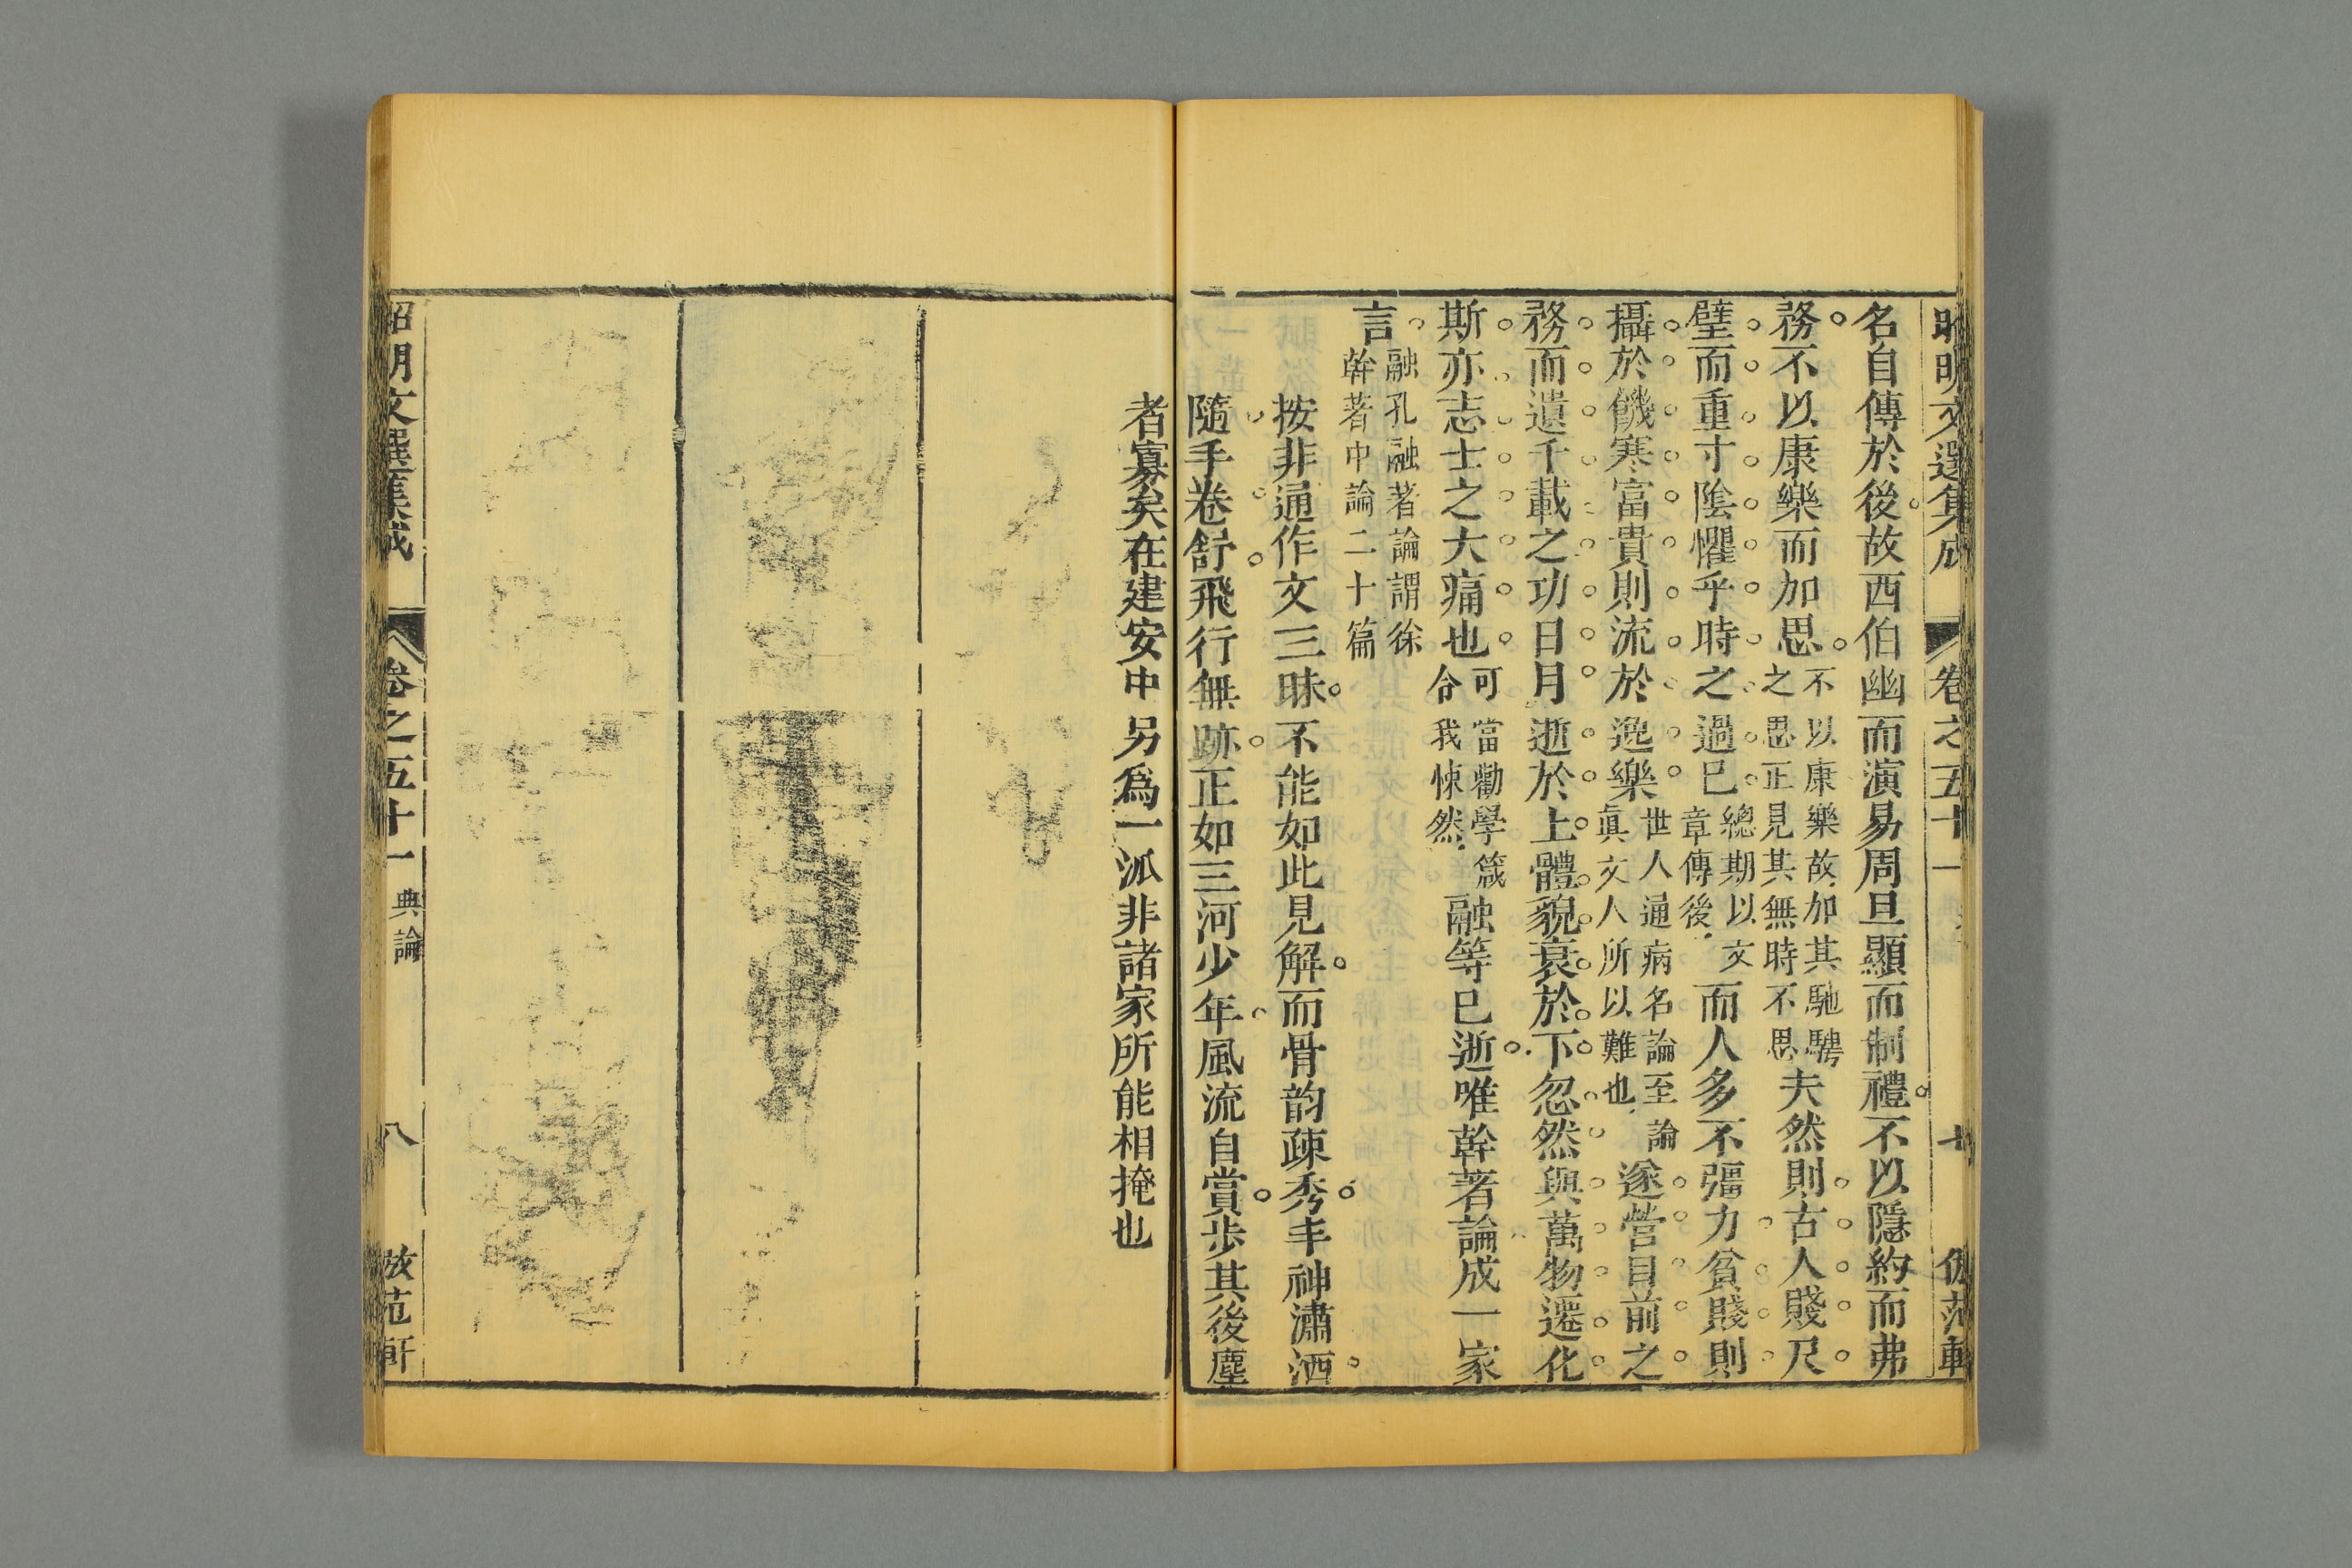 昭明文選集成 卷之五十一 七 倣范軒
名自傳於後故西伯幽而演易周旦顯而制禮不以隱約而弗
務不以康樂而加思不以康樂故加其馳騁之思正見其無時不思夫然則古人賤尺
璧而重寸陰懼乎時之過已總期以文章傳後而人多不彊力貧賤則
攝於饑寒富貴則流於逸樂世人通病名論至論眞文人所以難也遂營目前之
務而遺千載之功日月逝於上體貌衰於下忽然與萬物遷化
斯亦志士之大痛也可當勸學箴令我悚然融等已逝唯幹著論成一家
言融孔融著論謂徐幹著中論二十篇
按非通作文三昧不能如此見解而骨韵疎秀丰神瀟洒
隨手卷舒飛行無跡正如三河少年風流自賞步其後塵
者寡矣在建安中另爲一派非諸家所能相掩也
昭明文選集成 卷之五十一 典論 八 倣范軒